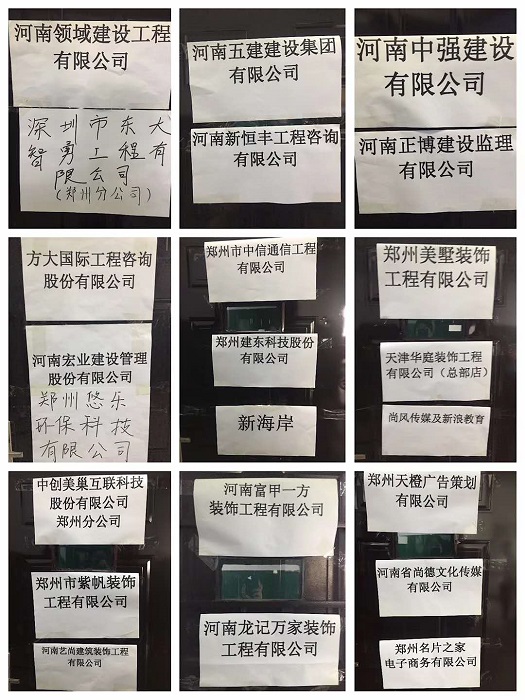 河南领域建设工程
有限公司
深圳市东大
智勇工程有
限公司
(郑州分公司)
河南五建建设集团
有限公司
河南新恒丰工程咨询
有限公司
河南中强建设
有限公司
河南正博建设监理
有限公司
方大国际工程咨询
股份有限公司
河南宏业建设管理
股份有限公司
郑州悠乐
环保科技
有限公司
郑州市中信通信工程
有限公司
郑州建东科技股份
有限公司
新海岸
郑州美墅装饰
工程有限公司
天津华庭装饰工程
有限公司（总部店）
尚风传媒及新浪教育
中创美巢互联科技
股份有限公司
郑州分公司
郑州市紫帆装饰
工程有限公司
河南艺尚建筑装饰工程
有限公司
河南富甲一方
装饰工程有限公司
河南龙记万家装饰
工程有限公司
郑州天橙广告策划
有限公司
河南省尚德文化传媒
有限公司
郑州名片之家
电子商务有限公司